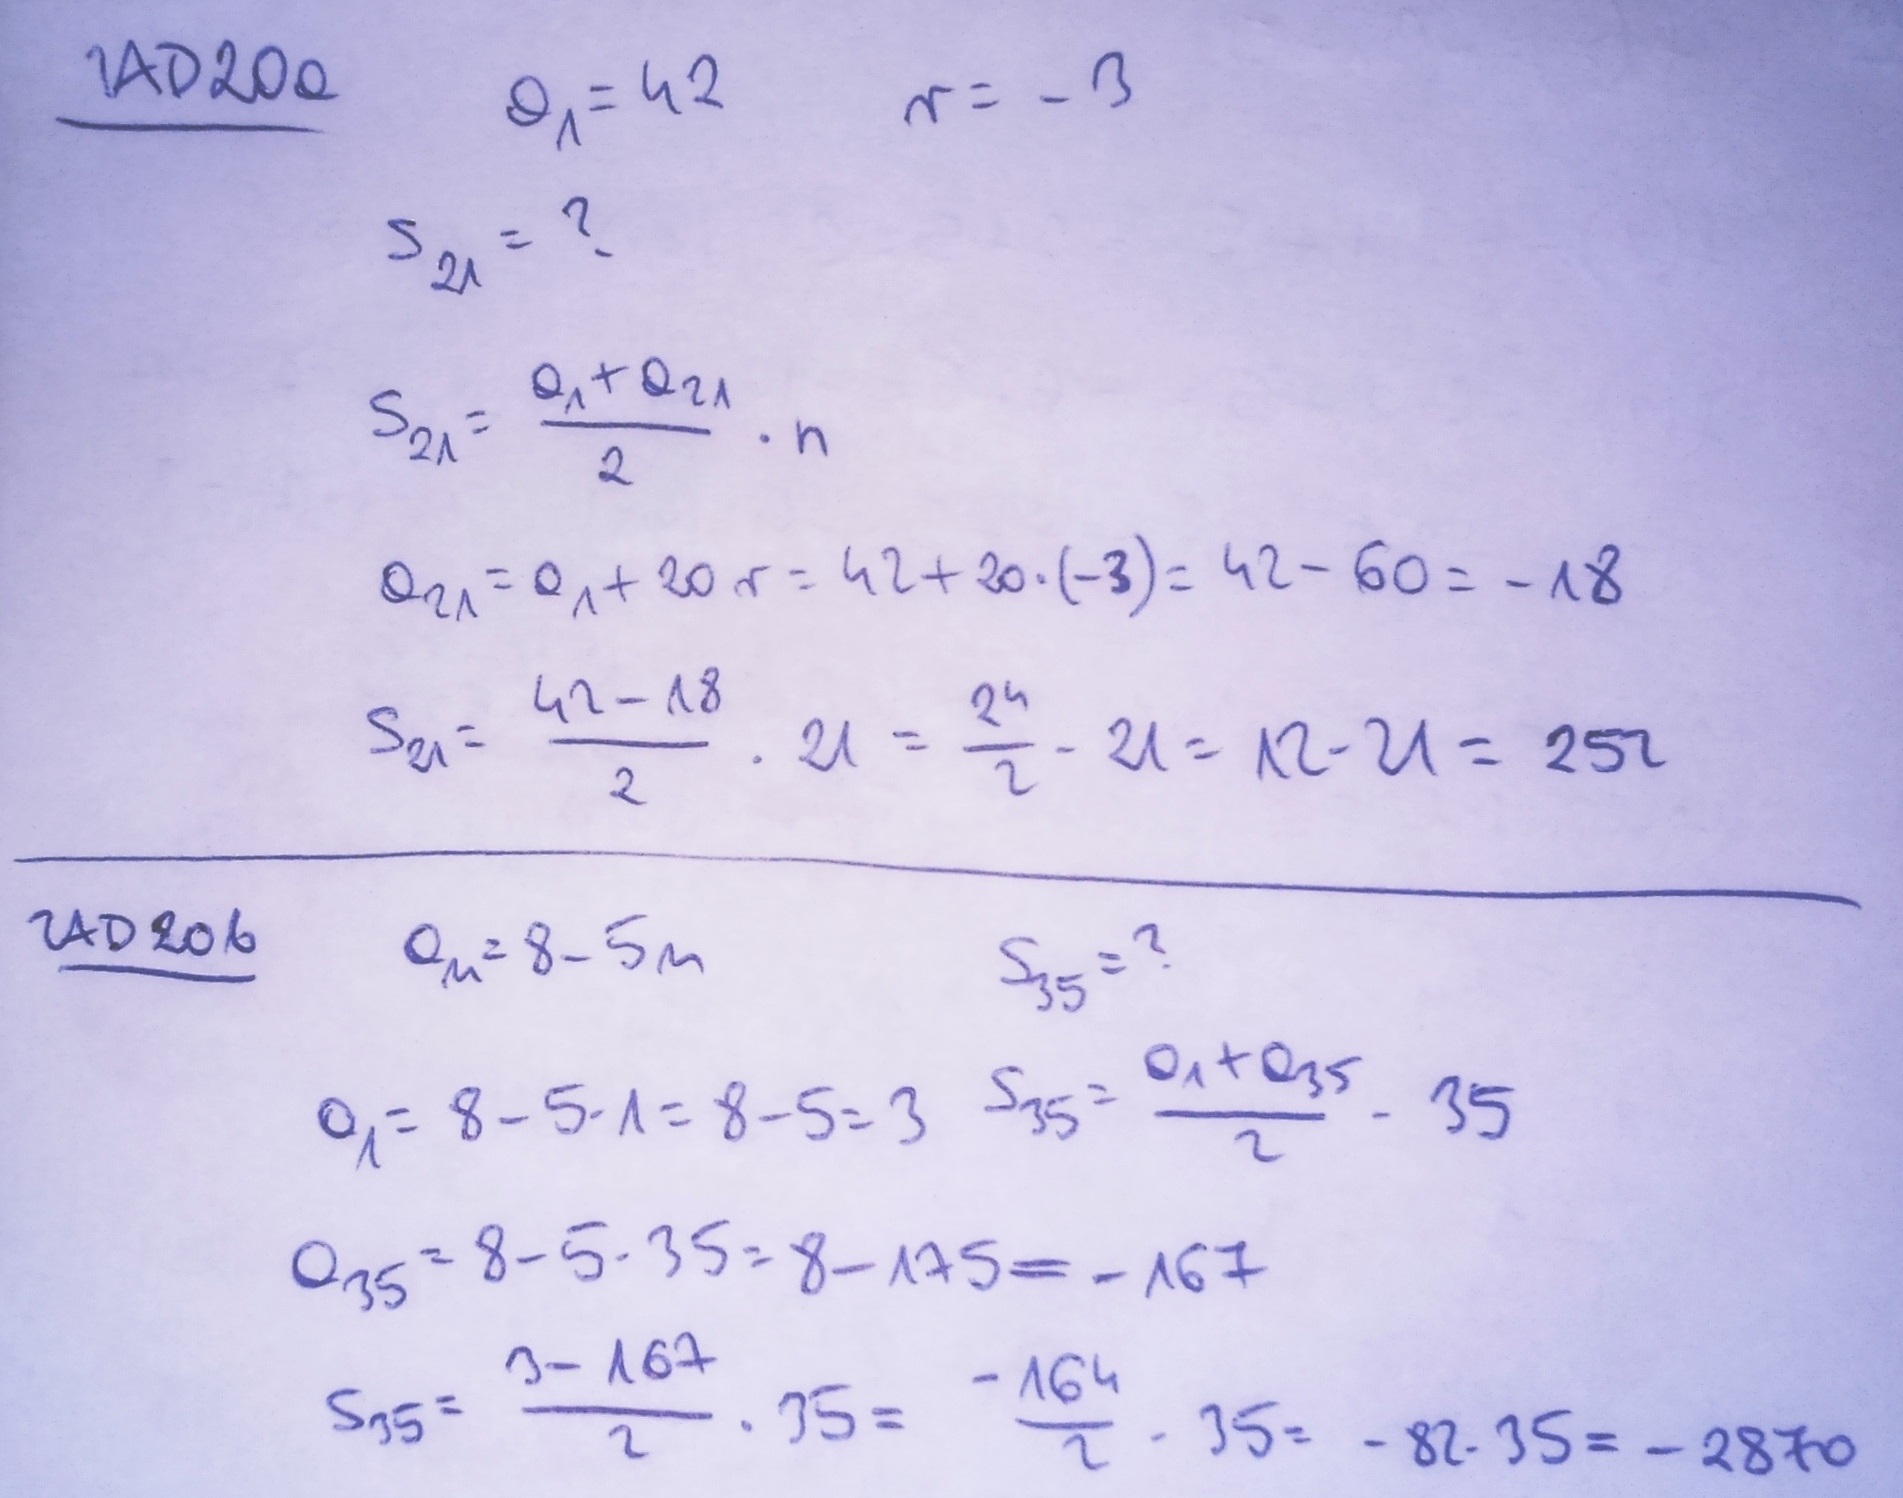 ZAD20a a₁ = 42 r = -3
S₂₁ = ?
S₂₁ = (a₁ + a₂₁)/2 · n
a₂₁ = a₁ + 20r = 42 + 20·(-3) = 42 - 60 = -18
S₂₁ = (42 - 18)/2 · 21 = 24/2 · 21 = 12 · 21 = 252
ZAD20b aₙ = 8 - 5n S₃₅ = ?
a₁ = 8 - 5·1 = 8 - 5 = 3 S₃₅ = (a₁ + a₃₅)/2 · 35
a₃₅ = 8 - 5·35 = 8 - 175 = -167
S₃₅ = (3 - 167)/2 · 35 = -164/2 · 35 = -82·35 = -2870